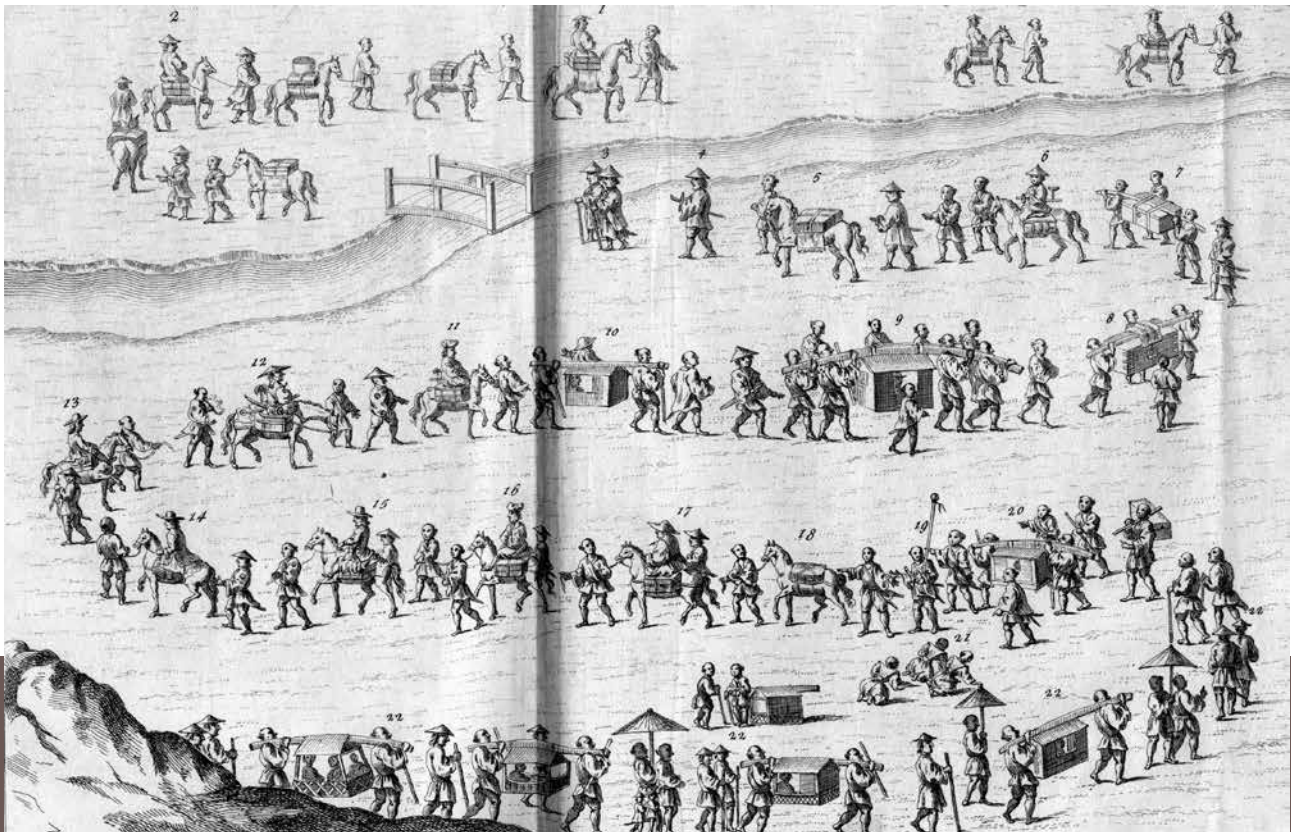 2 1
3 4 5 6 7
8
9
10
11
12
13
14 15 16 17 18 19 20
21
22
22
22
22